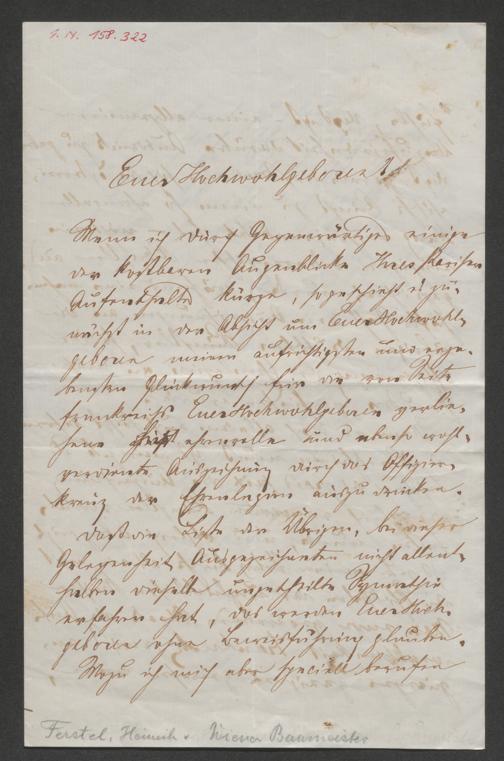 I. N. 158.322
Euer Hochwohlgeboren!
Wenn ich durch Gegenwärtiges einige
der kostbaren Augenblicke Ihres Pariser
Aufenthaltes kürze, so geschieht es zu-
nächst in der Absicht um Euer Hochwohl-
geboren meinen aufrichtigsten und erge-
bensten Glückwunsch für die von Seite
Frankreichs Euer Hochwohlgeboren verlie-
hene ehrenvolle und ebenso wohl-
verdiente Auszeichnung durch das Offiziers-
kreuz der Ehrenlegion auszudrücken.
Daß die Liste der Übrigen, bei dieser
Gelegenheit Ausgezeichneten nicht allent-
halben dieselbe ungetheilte Sympathie
erfahren hat, das werden Euer Hoch-
geboren ohne Beweisführung glauben.
Wozu ich mich aber speciell berufen
Ferstel, Heinrich v. Wiener Baumeister